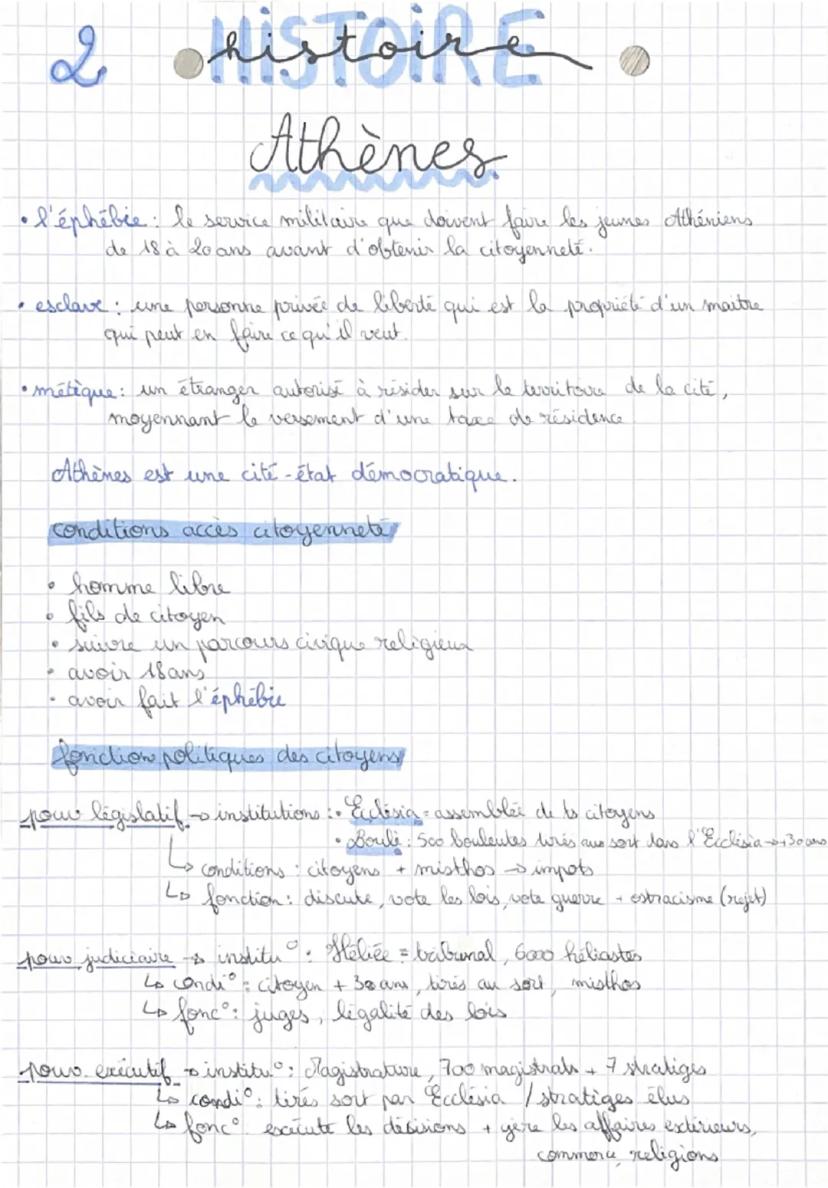 2 HISTOIRE histoire
Athènes
• l'éphébie : le service militaire que doivent faire les jeunes Athéniens
de 18 à 20 ans avant d'obtenir la citoyenneté.
• esclave : une personne privée de liberté qui est la propriété d'un maitre
qui peut en faire ce qu'il veut.
• métèque : un étranger autorisé à résider sur le territoire de la cité,
moyennant le versement d'une taxe de résidence
Athènes est une cité-état démocratique.
conditions accès citoyenneté
• homme libre
• fils de citoyen
• suivre un parcours civique religieux
• avoir 18 ans
• avoir fait l'éphébie
fonction politiques des citoyens
pouv législatif → institutions : • Ecclésia = assemblée de ts citoyens
• Boulè : 500 bouleutes tirés au sort dans l'Ecclésia → +30 ans
↳ conditions : citoyens + misthos → impots
↳ fonction : discute, vote les lois, vote guerre + ostracisme (rejet)
pouv judiciaire → institu° : Héliée = tribunal, 6000 héliastes
↳ condi° : citoyen + 30 ans, tirés au sort, misthos
↳ fonc° : juges, légalité des lois
pouv. exécutif → institu° : Magistrature, 700 magistrats + 7 stratèges
↳ condi° : tirés sort par Ecclésia / stratèges élus
↳ fonc° exécute les décisions + gère les affaires extérieurs,
commerce, religions